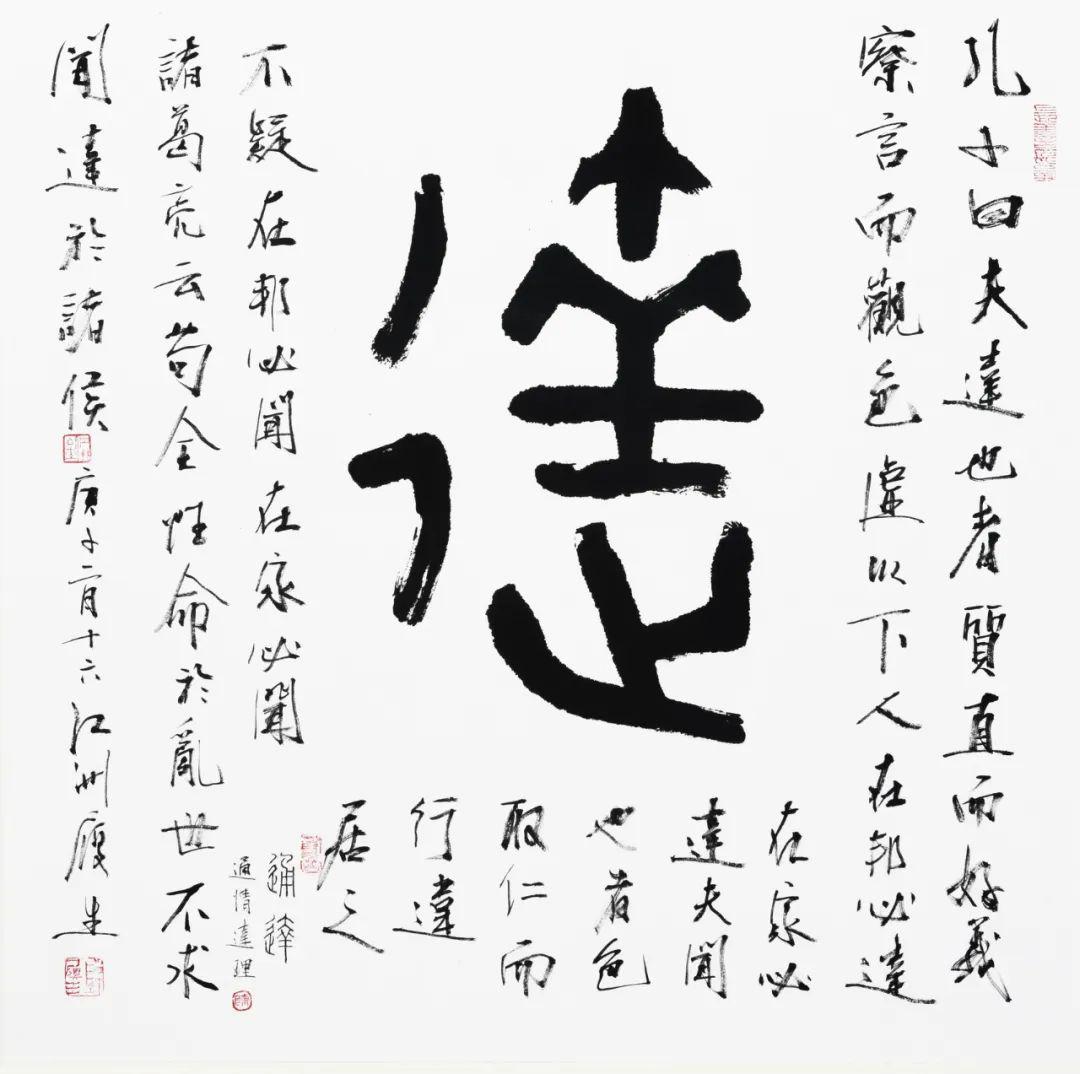 孔子曰夫達也者質直而好義
察言而觀色慮以下人在邦必達
達
在家必
達夫聞
也者色
取仁而
行違
居之
不疑在邦必聞在家必聞
通達
通情達理
諸葛亮云苟全性命於亂世不求
聞達於諸侯庚子二月十六江洲生